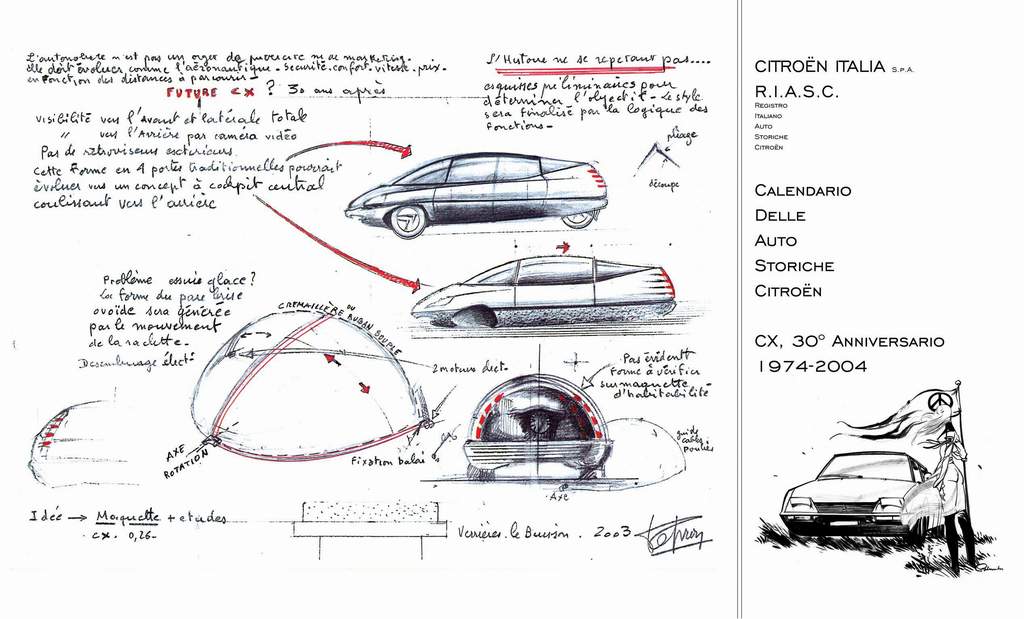 L'automobile n'est pas un objet de publicité ni de marketing.
Elle doit évoluer comme l'aéronautique - Sécurité. confort. vitesse. prix -
en fonction des distances à parcourir -
FUTURE CX ? 30 ans après
Visibilité vers l'avant et latérale totale
" vers l'Arrière par caméra vidéo
Pas de retroviseurs extérieurs
cette forme en 4 portes traditionnelles pourrait
évoluer vers un concept à cockpit central
coulissant vers l'arrière
L'Histoire ne se repetant pas....
esquisses préliminaires pour
déterminer l'objectif - Le style
sera finalisé par la logique des
fonctions -
pliage
découpe
Problème essuie glace?
La forme du pare brise
ovoïde sera générée
par le mouvement
de la raclette -
Desembuage élect.
OU
CREMAILLÈRE RUBAN SOUPLE
2 moteurs élect -
AXE
ROTATION
Fixation balai
Pas évident
forme à vérifier
sur maquette
d'habitabilité
guide
cables
poulies
Axe
Idée → Maquette + etudes
cx. 0,26 -
Verrières. le Buisson. 2003
CITROËN ITALIA S.P.A.
R.I.A.S.C.
REGISTRO
ITALIANO
AUTO
STORICHE
CITROËN
CALENDARIO
DELLE
AUTO
STORICHE
CITROËN
CX, 30° ANNIVERSARIO
1974-2004